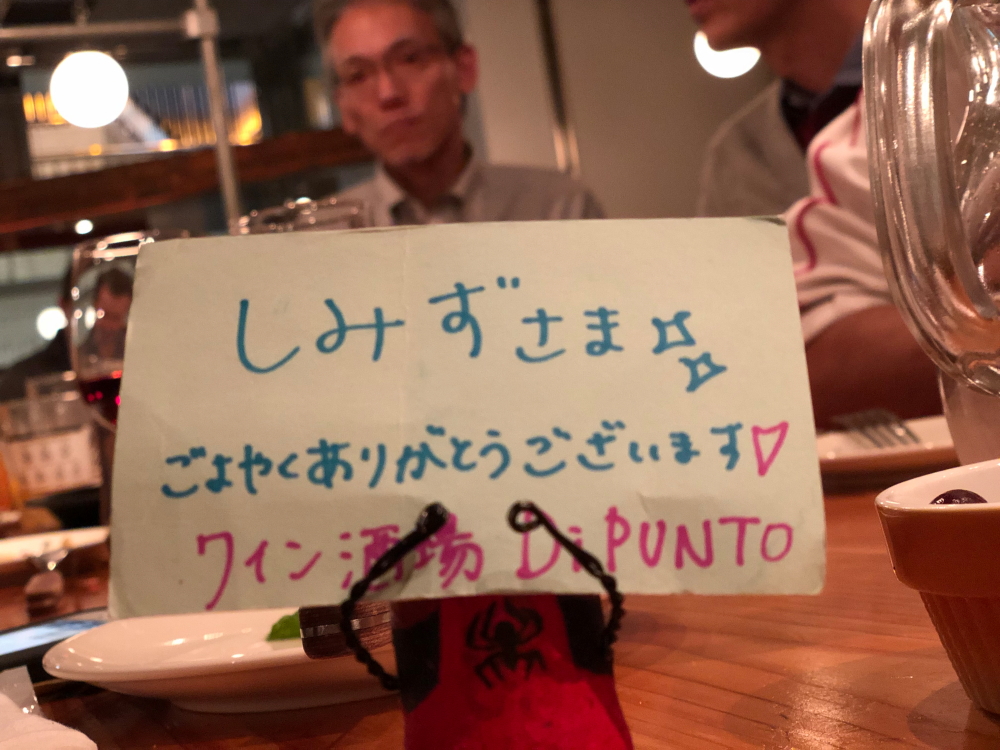 しみずさま
ごよやくありがとうございます♡
ワイン酒場 Di PUNTO